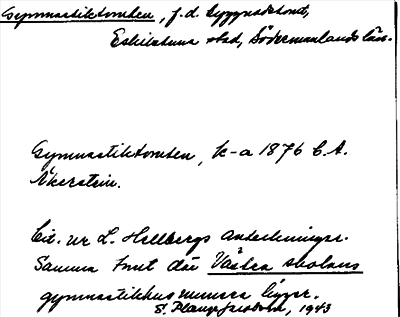 Gymnastiktomten, f.d. byggnadstomt,
Eskilstuna stad, Södermanlands län.
Gymnastiktomten, k-a 1876 C.A.
Åkerstein.
Cit. ur L. Hellbergs anteckningar.
Samma tomt där Västra skolans
gymnastikhus numera ligger.
1943